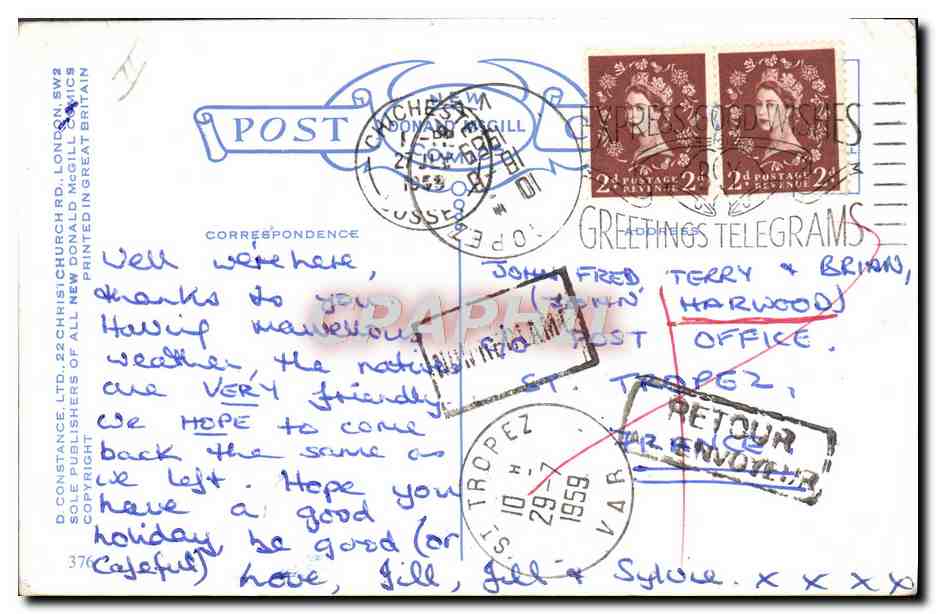 D. CONSTANCE, LTD., 22 CHRISTCHURCH RD., LONDON, SW2
SOLE PUBLISHERS OF ALL NEW DONALD McGILL COMICS
COPYRIGHT PRINTED IN GREAT BRITAIN
376
POST
NEW
DONALD McGILL
COMICS
CORRESPONDENCE
ADDRESS
CHICHESTER
1959
SUSSEX
TROPEZ
EXPRESS GOOD WISHES
BY
GREETINGS TELEGRAMS
2d POSTAGE REVENUE 2d
2d POSTAGE REVENUE 2d
Well we're here,
thanks to you
Having marvellous
weather, the natives
are VERY friendly
we HOPE to come
back the same as
we left. Hope you
have a good
holiday, be good (or
Careful) Love, Jill, Jill & Sylvie. x x x x
JOHN, FRED, TERRY & BRIAN,
(JOHN HARWOOD)
C/O POST OFFICE,
ST. TROPEZ,
FRANCE
NON RECLAME
RETOUR
A L'ENVOYEUR
ST. TROPEZ
10 H
29-7
1959
VAR
CPAPHIL